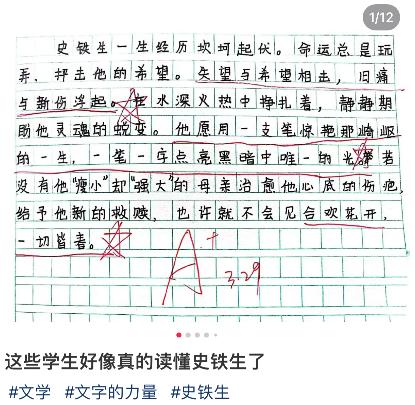 1/12
史铁生一生经历坎坷起伏。命运总是玩
弄、抨击他的希望。失望与希望相击，旧痛
与新伤浮起。在水深火热中挣扎着，静静期
助他灵魂的蜕变。他愿用一支笔惊艳那崎岖
的一生，一笔一字点亮黑暗中唯一的光
没有他“瘦小”却“强大”的母亲治愈他心底的伤疤，
给予他新的救赎，也许就不会见合欢花开，
一切皆春。
A+
3.29
这些学生好像真的读懂史铁生了
#文学 #文字的力量 #史铁生